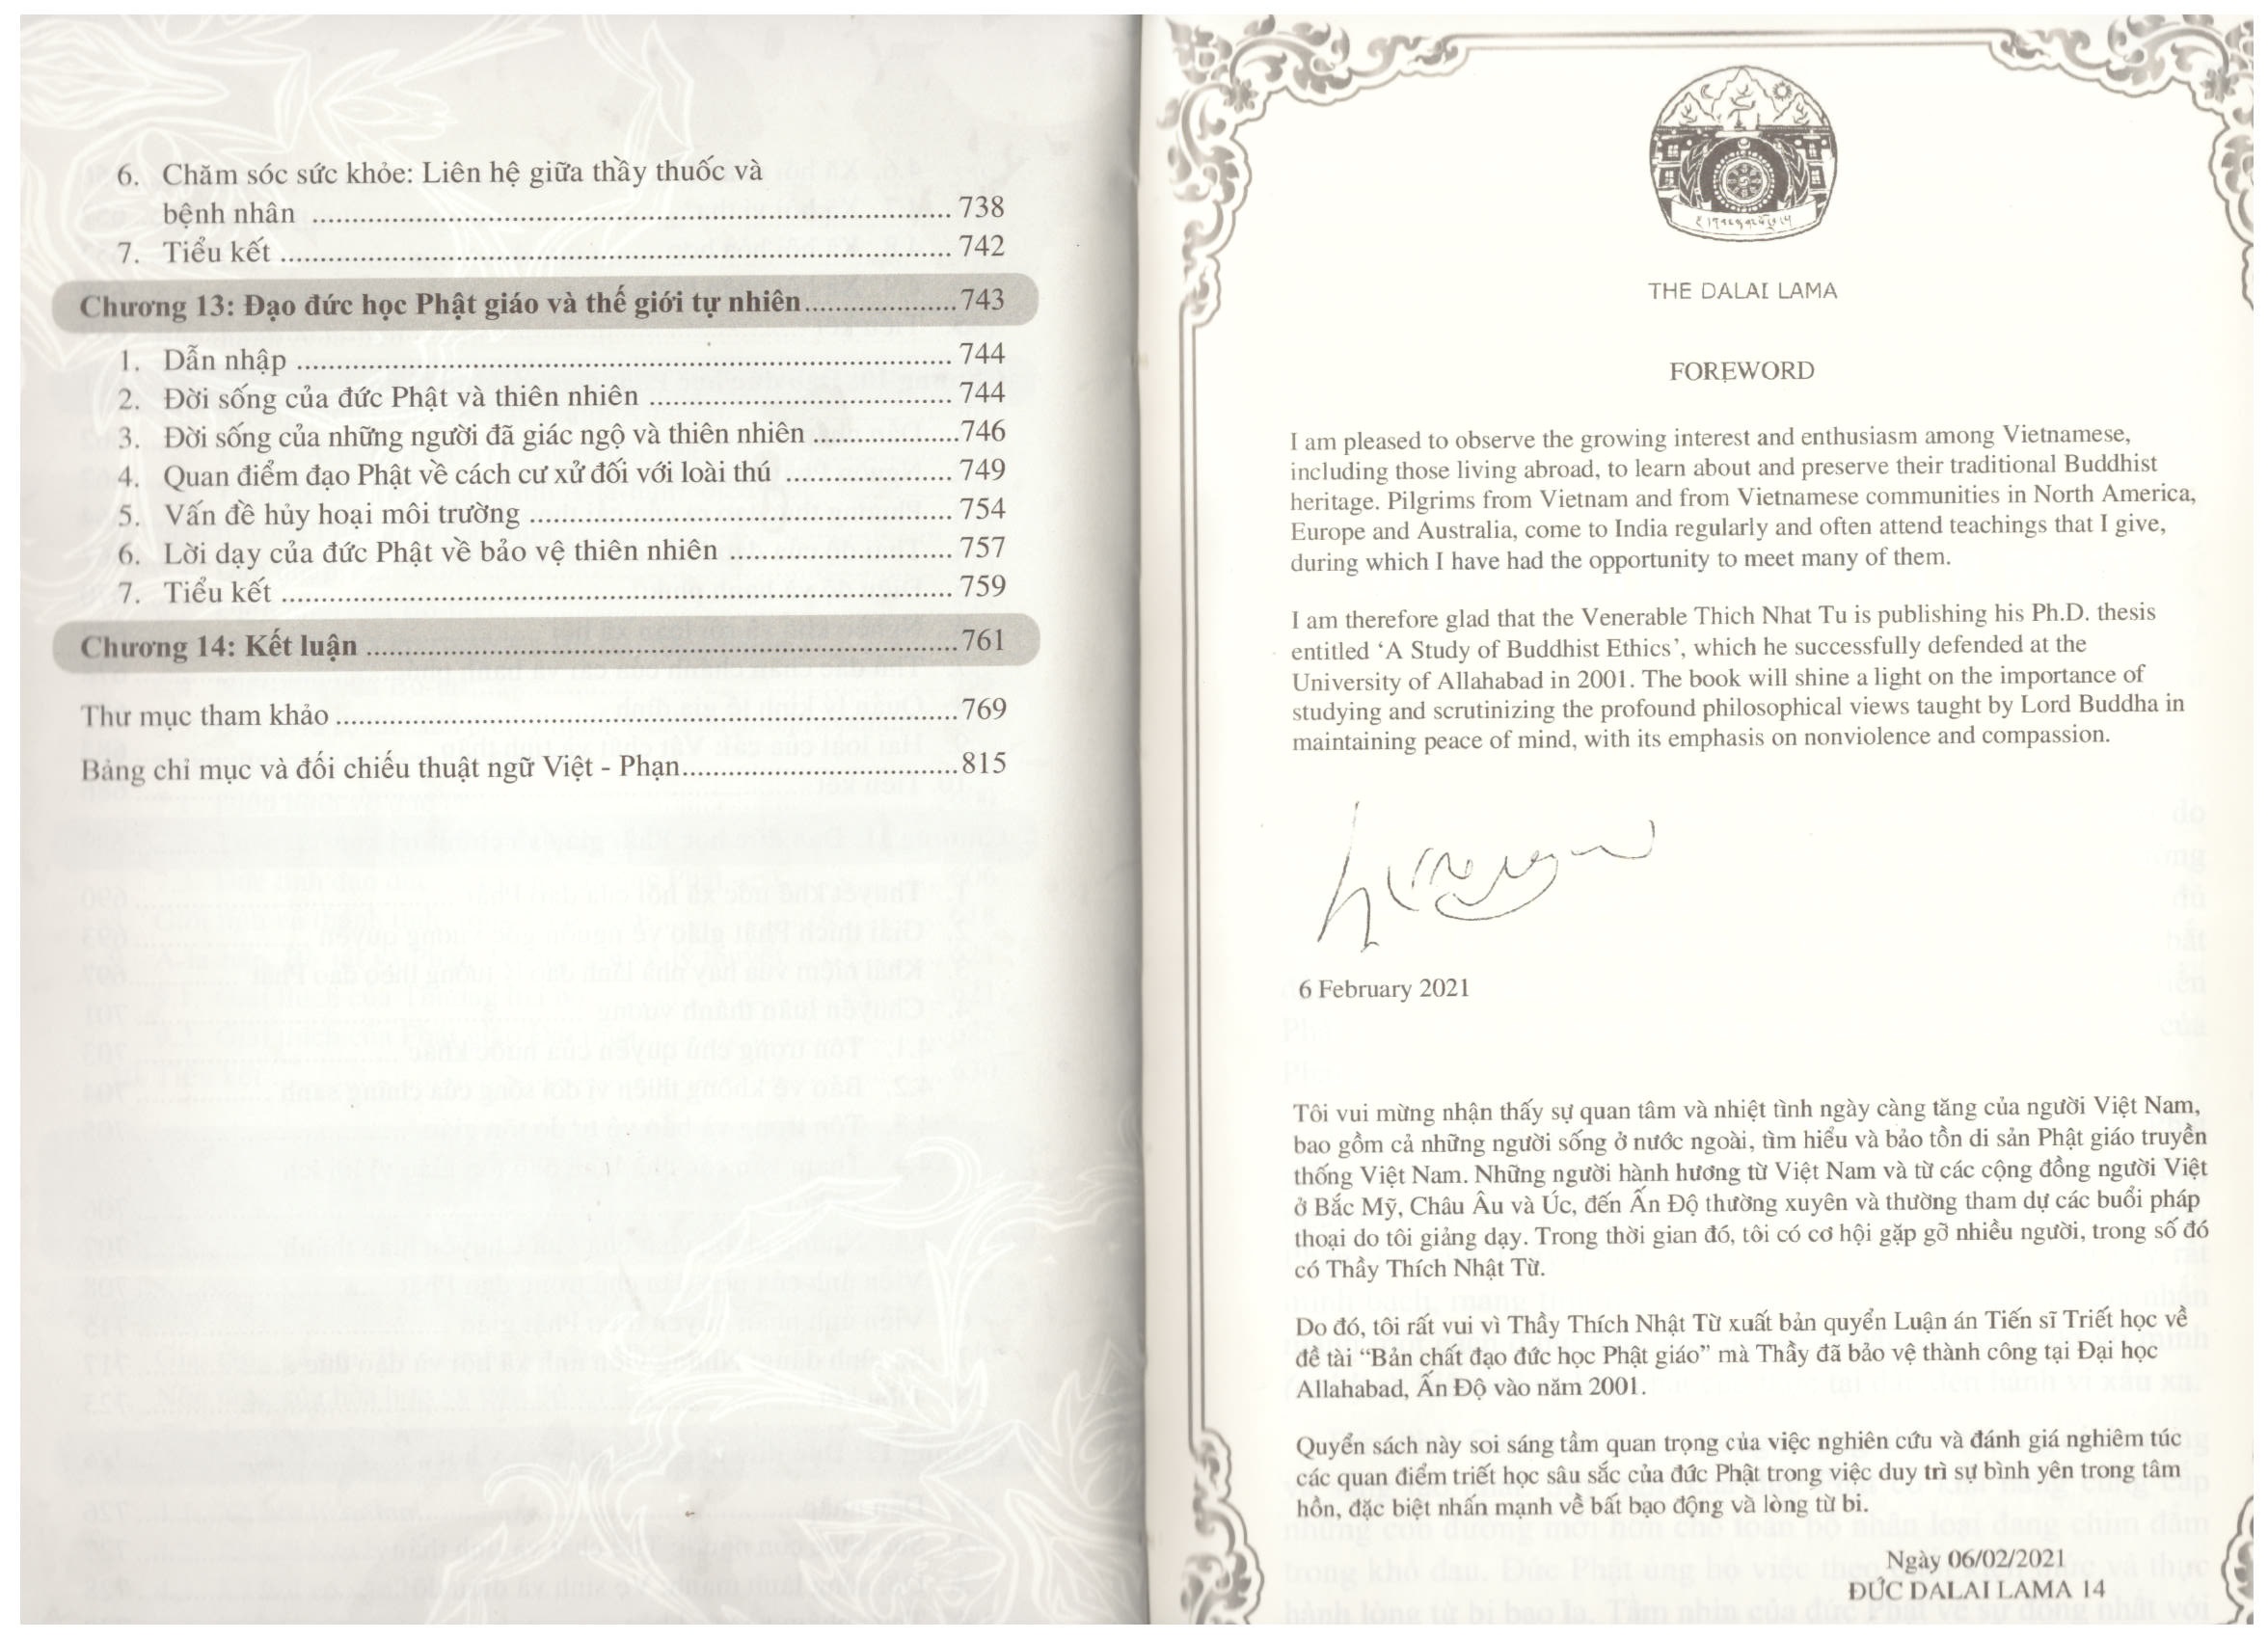 6. Chăm sóc sức khỏe: Liên hệ giữa thầy thuốc và
bệnh nhân ........ 738
7. Tiểu kết ........ 742
Chương 13: Đạo đức học Phật giáo và thế giới tự nhiên ........ 743
1. Dẫn nhập ........ 744
2. Đời sống của đức Phật và thiên nhiên ........ 744
3. Đời sống của những người đã giác ngộ và thiên nhiên ........ 746
4. Quan điểm đạo Phật về cách cư xử đối với loài thú ........ 749
5. Vấn đề hủy hoại môi trường ........ 754
6. Lời dạy của đức Phật về bảo vệ thiên nhiên ........ 757
7. Tiểu kết ........ 759
Chương 14: Kết luận ........ 761
Thư mục tham khảo ........ 769
Bảng chỉ mục và đối chiếu thuật ngữ Việt - Phạn ........ 815
THE DALAI LAMA
FOREWORD
I am pleased to observe the growing interest and enthusiasm among Vietnamese,
including those living abroad, to learn about and preserve their traditional Buddhist
heritage. Pilgrims from Vietnam and from Vietnamese communities in North America,
Europe and Australia, come to India regularly and often attend teachings that I give,
during which I have had the opportunity to meet many of them.
I am therefore glad that the Venerable Thich Nhat Tu is publishing his Ph.D. thesis
entitled ‘A Study of Buddhist Ethics’, which he successfully defended at the
University of Allahabad in 2001. The book will shine a light on the importance of
studying and scrutinizing the profound philosophical views taught by Lord Buddha in
maintaining peace of mind, with its emphasis on nonviolence and compassion.
6 February 2021
Tôi vui mừng nhận thấy sự quan tâm và nhiệt tình ngày càng tăng của người Việt Nam,
bao gồm cả những người sống ở nước ngoài, tìm hiểu và bảo tồn di sản Phật giáo truyền
thống Việt Nam. Những người hành hương từ Việt Nam và từ các cộng đồng người Việt
ở Bắc Mỹ, Châu Âu và Úc, đến Ấn Độ thường xuyên và thường tham dự các buổi pháp
thoại do tôi giảng dạy. Trong thời gian đó, tôi có cơ hội gặp gỡ nhiều người, trong số đó
có Thầy Thích Nhật Từ.
Do đó, tôi rất vui vì Thầy Thích Nhật Từ xuất bản quyển Luận án Tiến sĩ Triết học về
đề tài “Bản chất đạo đức học Phật giáo” mà Thầy đã bảo vệ thành công tại Đại học
Allahabad, Ấn Độ vào năm 2001.
Quyển sách này soi sáng tầm quan trọng của việc nghiên cứu và đánh giá nghiêm túc
các quan điểm triết học sâu sắc của đức Phật trong việc duy trì sự bình yên trong tâm
hồn, đặc biệt nhấn mạnh về bất bạo động và lòng từ bi.
Ngày 06/02/2021
ĐỨC DALAI LAMA 14